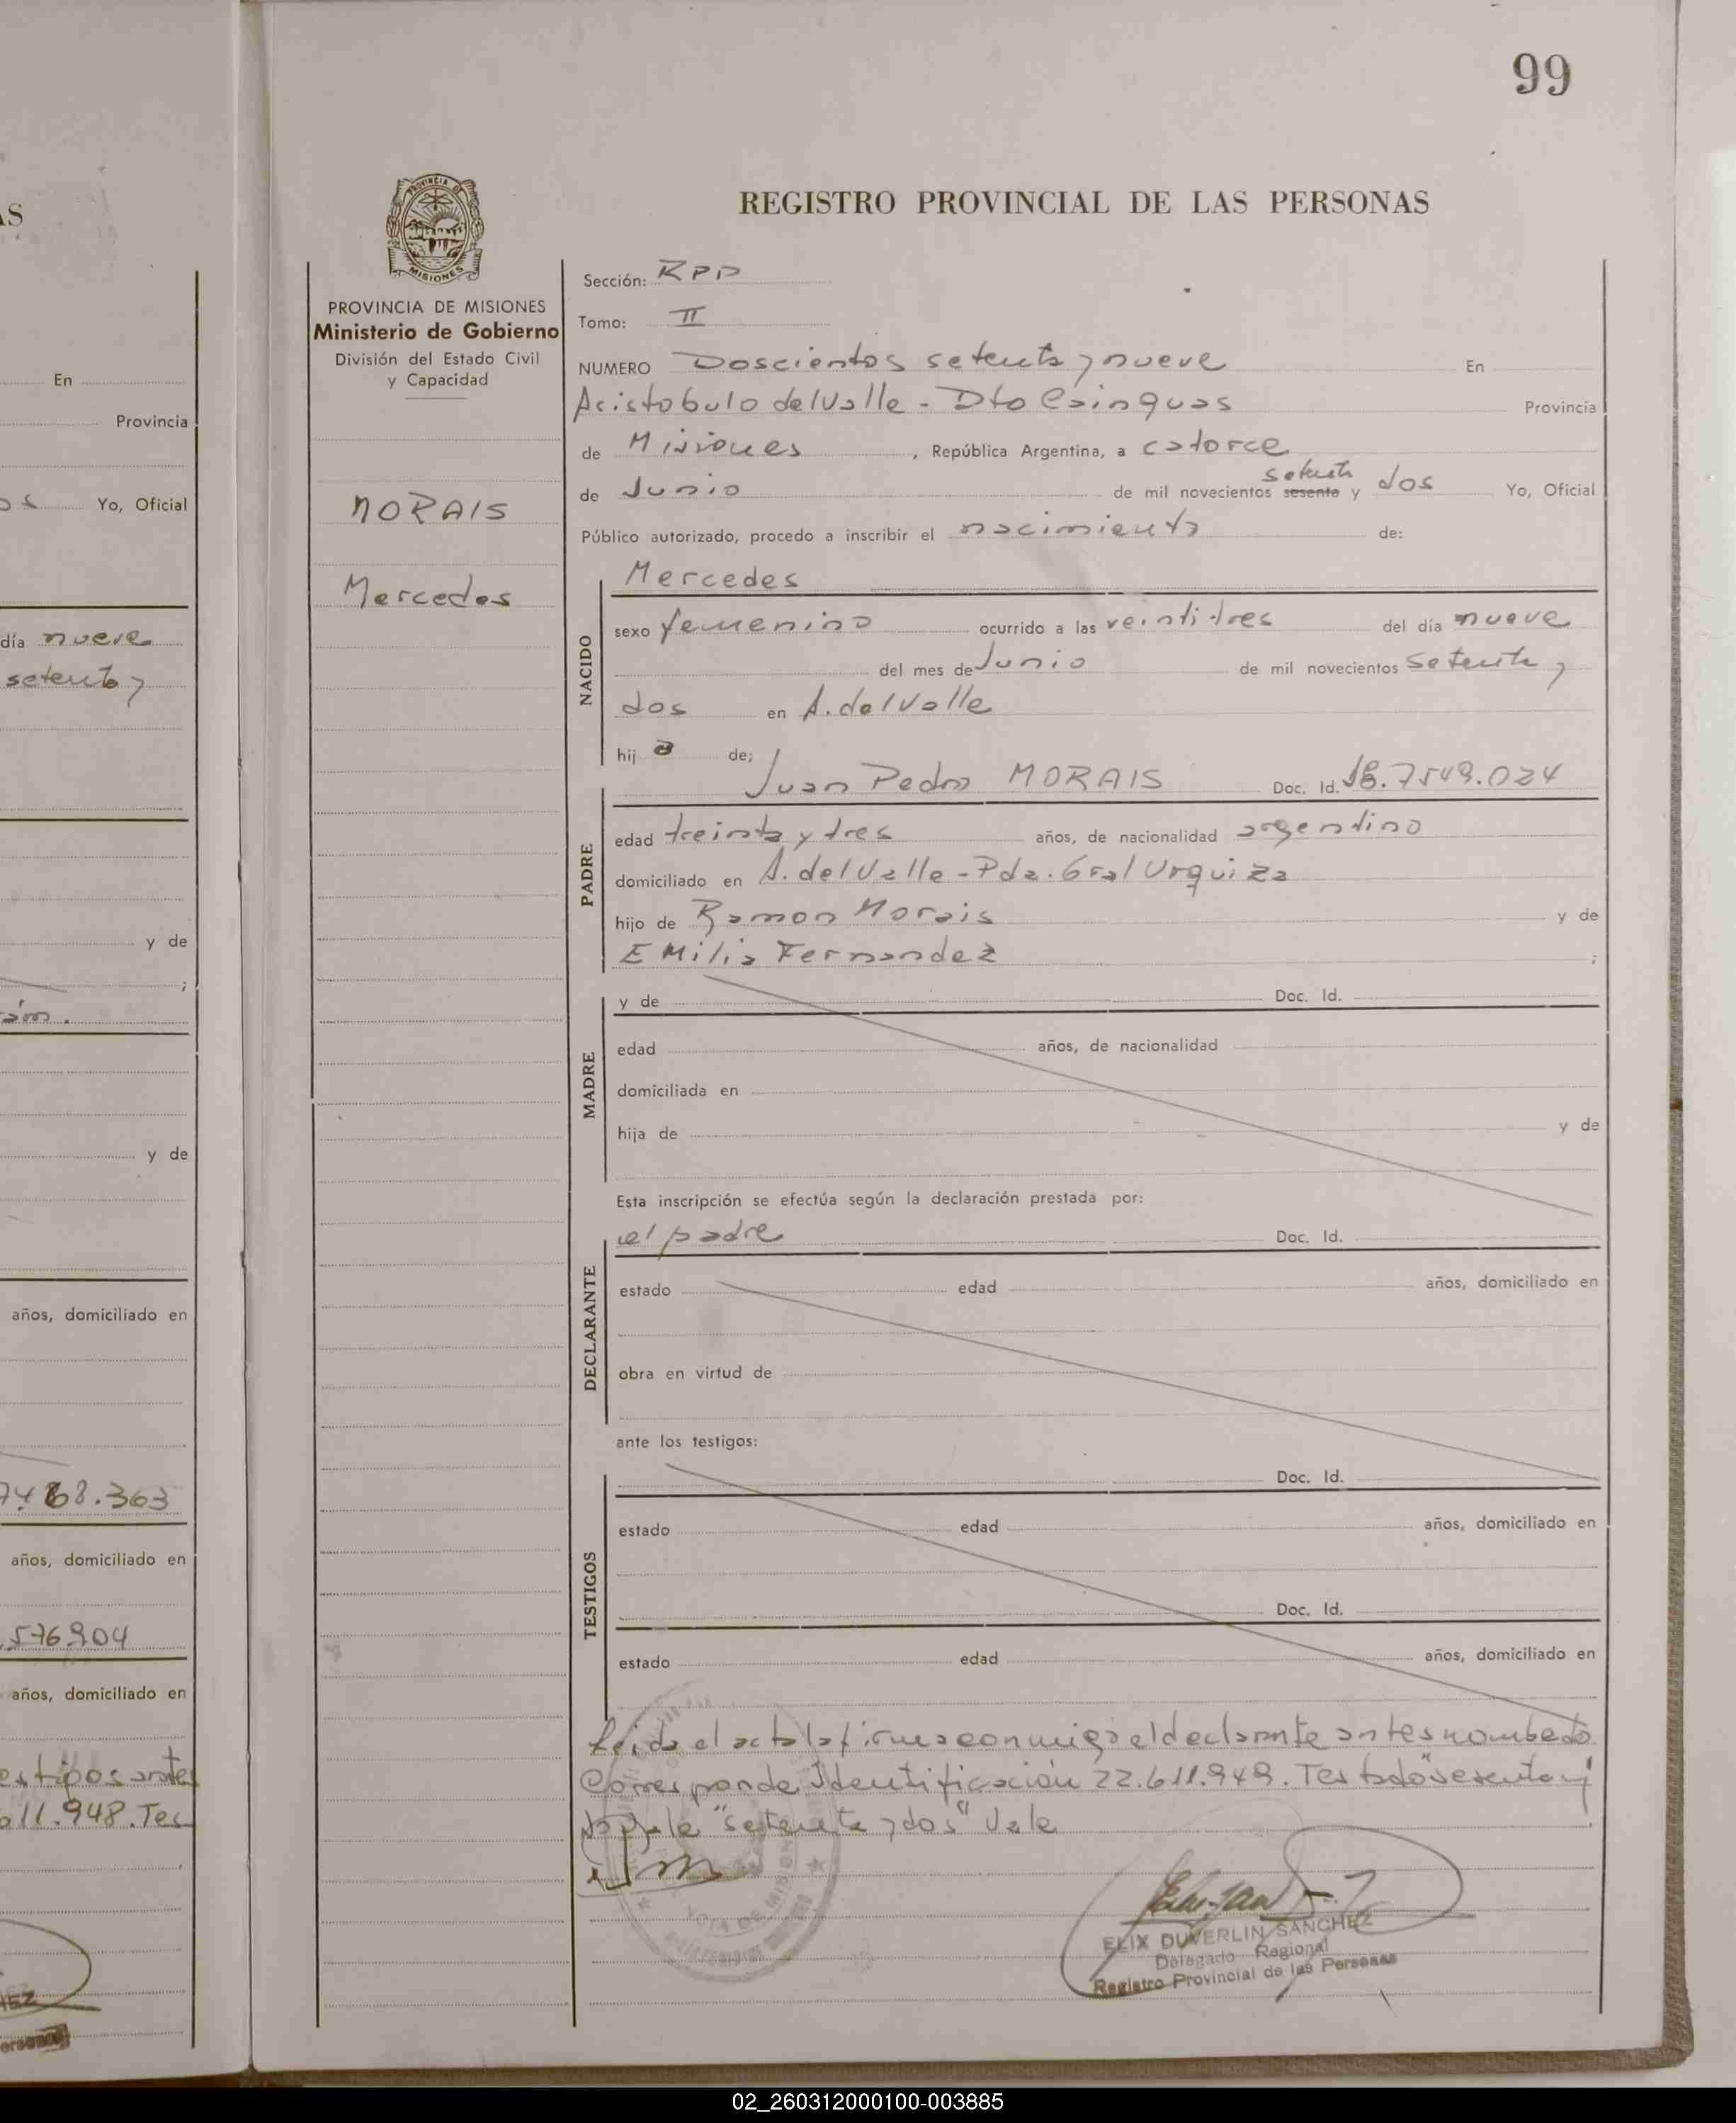 99
AS
REGISTRO PROVINCIAL DE LAS PERSONAS
PROVINCIA DE MISIONES
Ministerio de Gobierno
División del Estado Civil
y Capacidad
MORAIS
Mercedes
Sección: RPP
Tomo: II
NUMERO Doscientos setenta y nueve En
Aristobulo del Valle - Dto Cainguas Provincia
de Misiones, República Argentina, a catorce
setenta
de Junio de mil novecientos sesenta y dos Yo, Oficial
Público autorizado, procedo a inscribir el nacimiento de:
NACIDO
Mercedes
sexo femenino ocurrido a las veintitres del día nueve
del mes de Junio de mil novecientos setenta y
dos en A. del Valle
hij a de;
PADRE
Juan Pedro MORAIS Doc. Id. 18.7549.024
edad treinta y tres años, de nacionalidad argentino
domiciliado en A. del Valle - Pda. Gral Urquiza
hijo de Ramon Morais y de
Emilia Fernandez ;
MADRE
y de Doc. Id.
edad años, de nacionalidad
domiciliada en
hija de y de
Esta inscripción se efectúa según la declaración prestada por:
DECLARANTE
el padre Doc. Id.
estado edad años, domiciliado en
obra en virtud de
ante los testigos:
TESTIGOS
Doc. Id.
estado edad años, domiciliado en
Doc. Id.
estado edad años, domiciliado en
Leida el acta la firma conmigo el declarante antes nombrado
Corresponde Identificación 22.611.949. Testado "sesenta y
"setenta y dos" Vale
ELIX DUVERLIN SANCHEZ
Delegado Regional
Registro Provincial de las Personas
En
Provincia
Yo, Oficial
día nueve
setenta y
y de
;
y de
años, domiciliado en
7468.363
años, domiciliado en
576904
años, domiciliado en
testigos antes
611.948. Tes
02_260312000100-003885